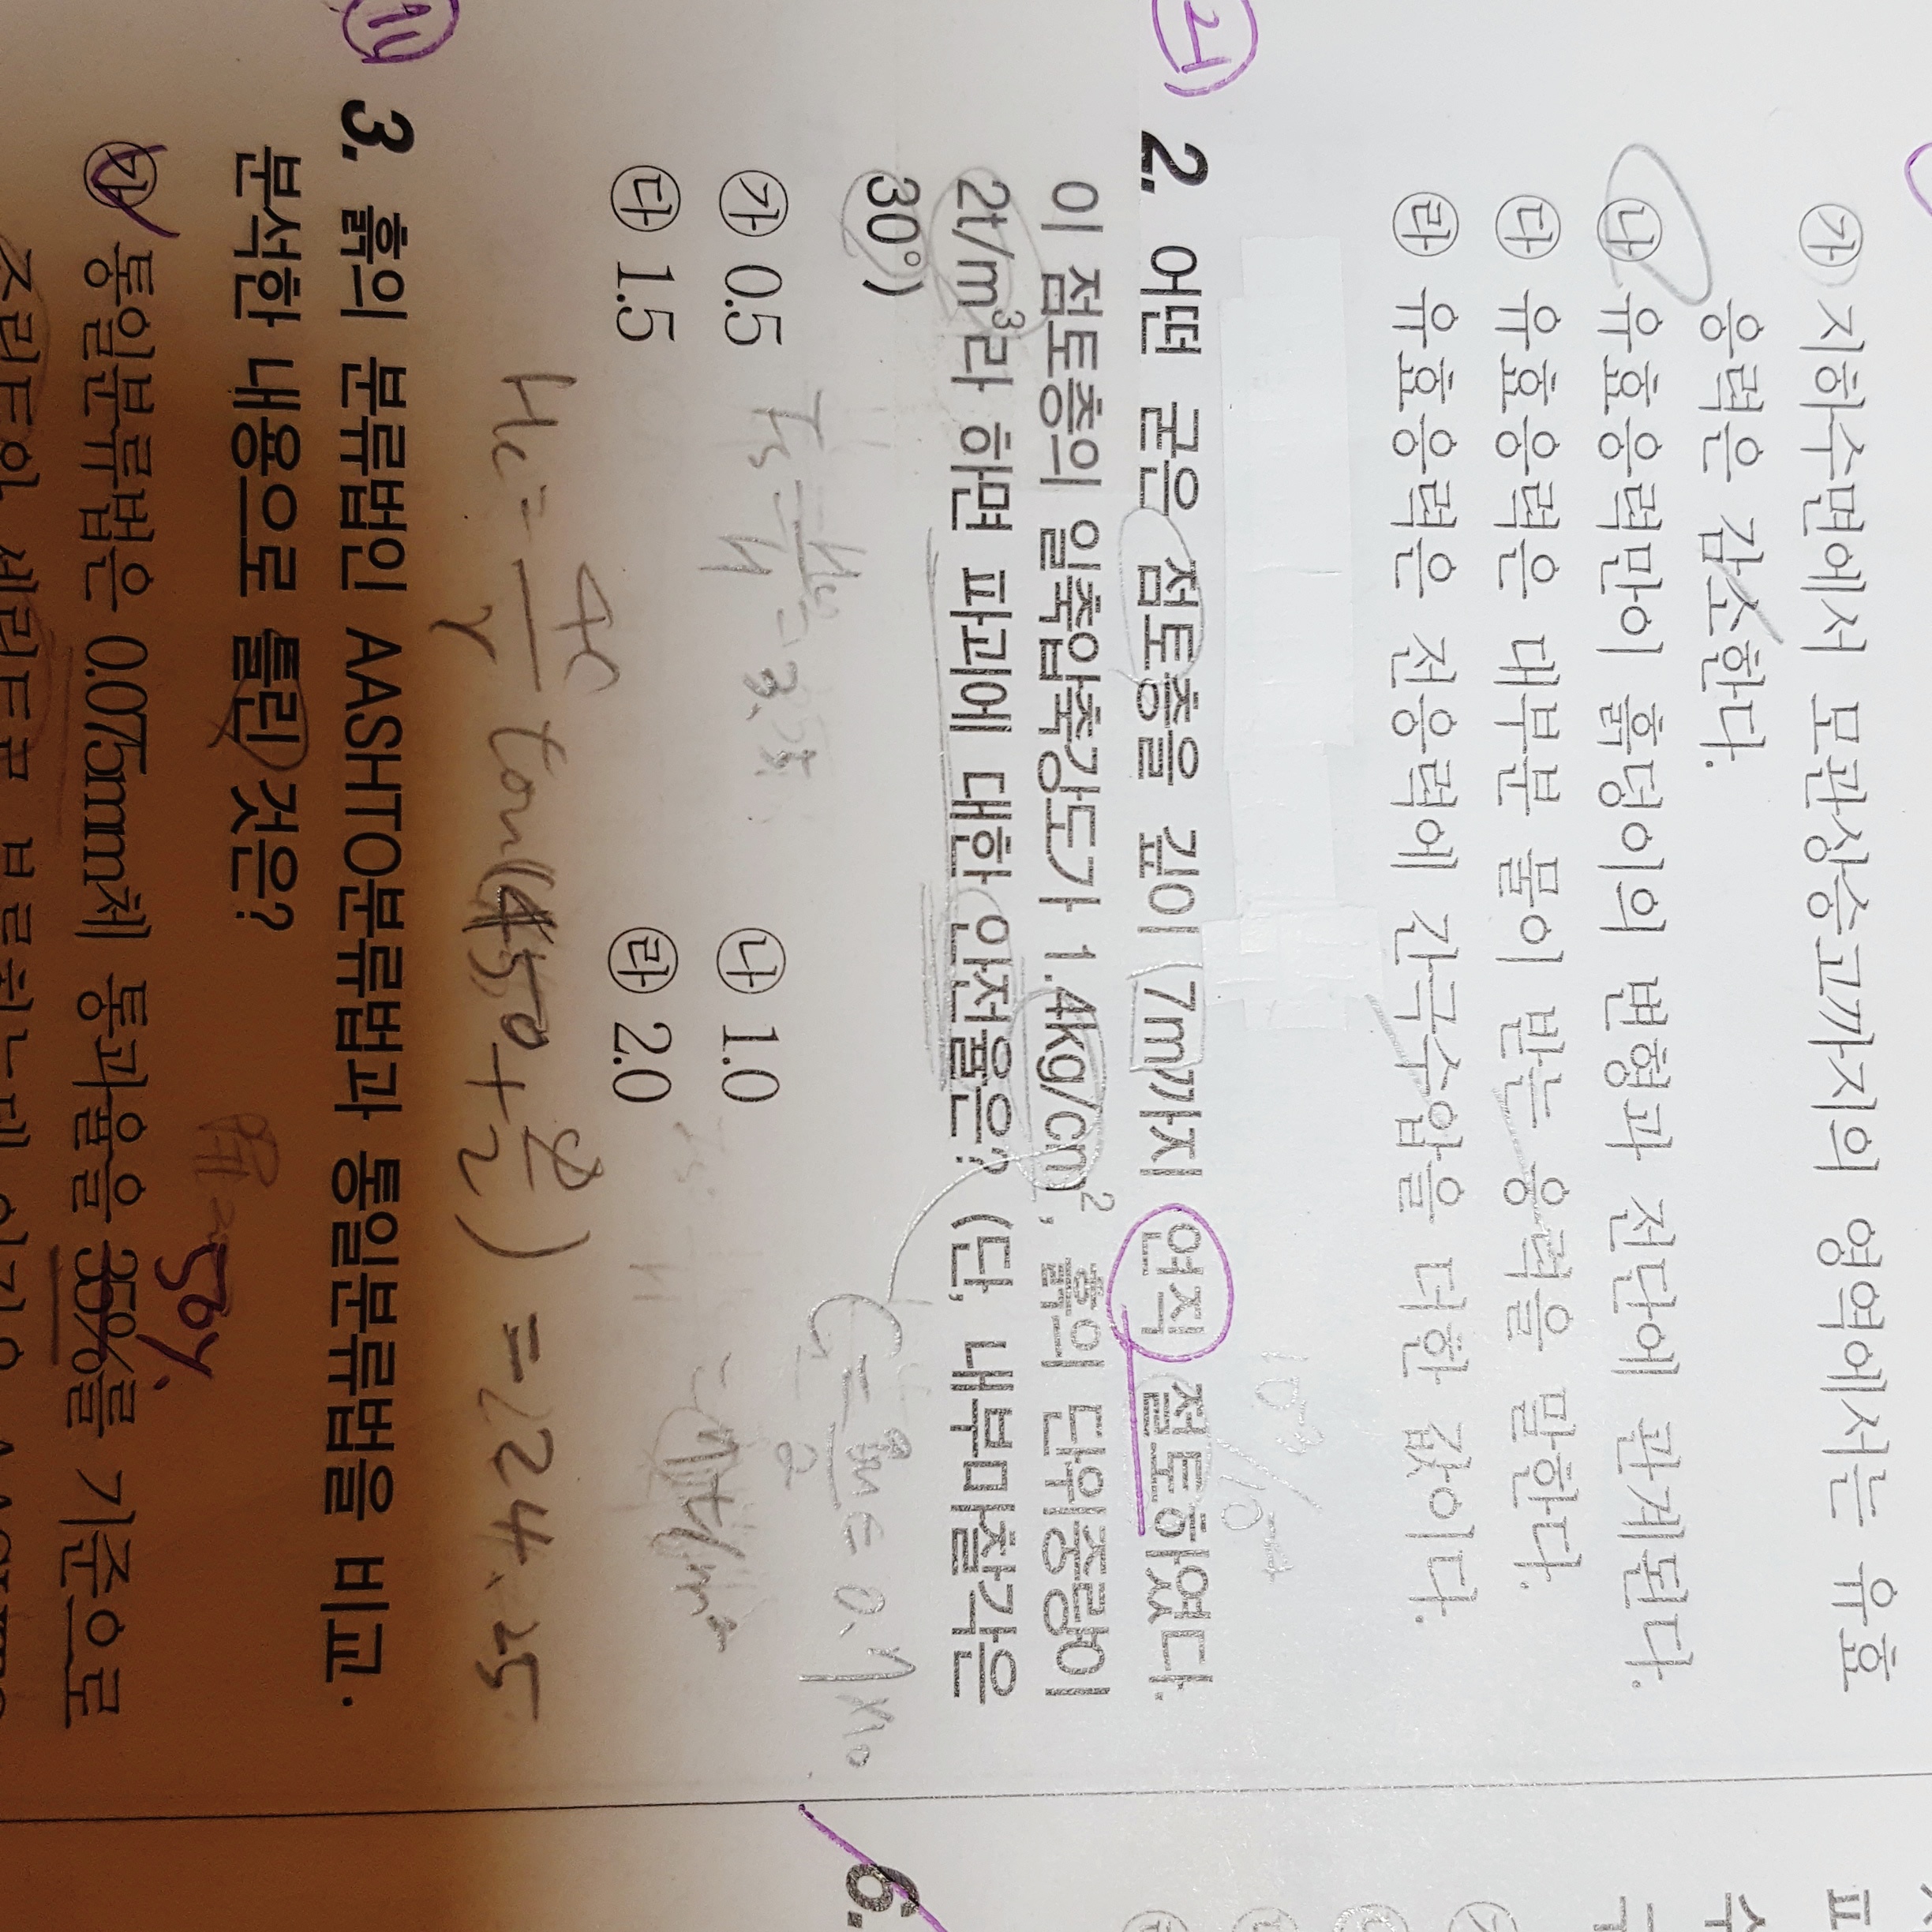 ㉮ 지하수면에서 모관상승고까지의 영역에서는 유효
응력은 감소한다.
㉯ 유효응력만이 흙덩이의 변형과 전단에 관계된다.
㉰ 유효응력은 대부분 물이 받는 응력을 말한다.
㉱ 유효응력은 전응력에 간극수압을 더한 값이다.
2. 어떤 굳은 점토층을 깊이 7m까지 연직 절토하였다.
이 점토층의 일축압축강도가 1.4kg/cm², 흙의 단위중량이
2t/m³라 하면 파괴에 대한 안전율은? (단, 내부마찰각은
30°)
㉮ 0.5 ㉯ 1.0
㉰ 1.5 ㉱ 2.0
Hc = 4c/γ tan(45° + φ/2) = 24.25
3. 흙의 분류법인 AASHTO분류법과 통일분류법을 비교·
분석한 내용으로 틀린 것은?
50%
㉮ 통일분류법은 0.075mm체 통과율을 35%를 기준으로
6.